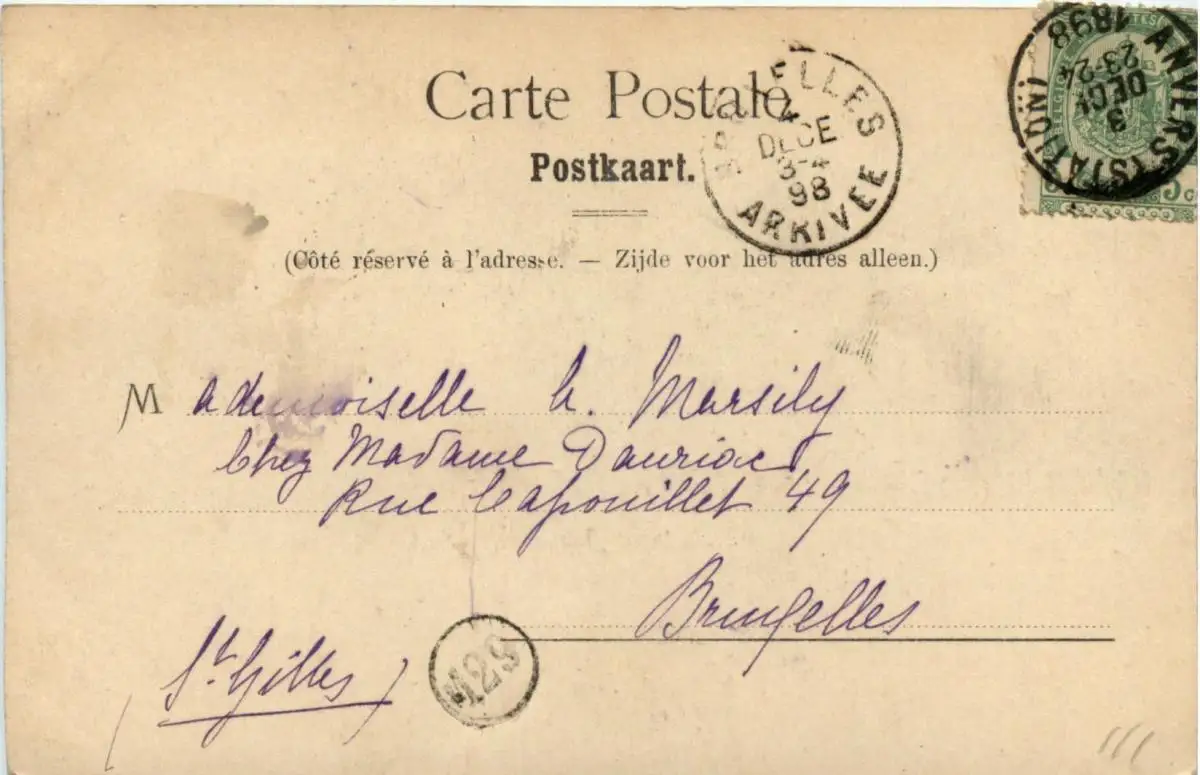 Carte Postale
Postkaart.
(Côté réservé à l'adresse. — Zijde voor het adres alleen.)
BRUXELLES
4
DECE
3-4
98
ARRIVEE
ANVERS (STATION)
3
DECE
23-24
1898
Mademoiselle A. Marsily
Chez Madame Dauriac
Rue Capouillet 49
Bruxelles
(St. Gilles)